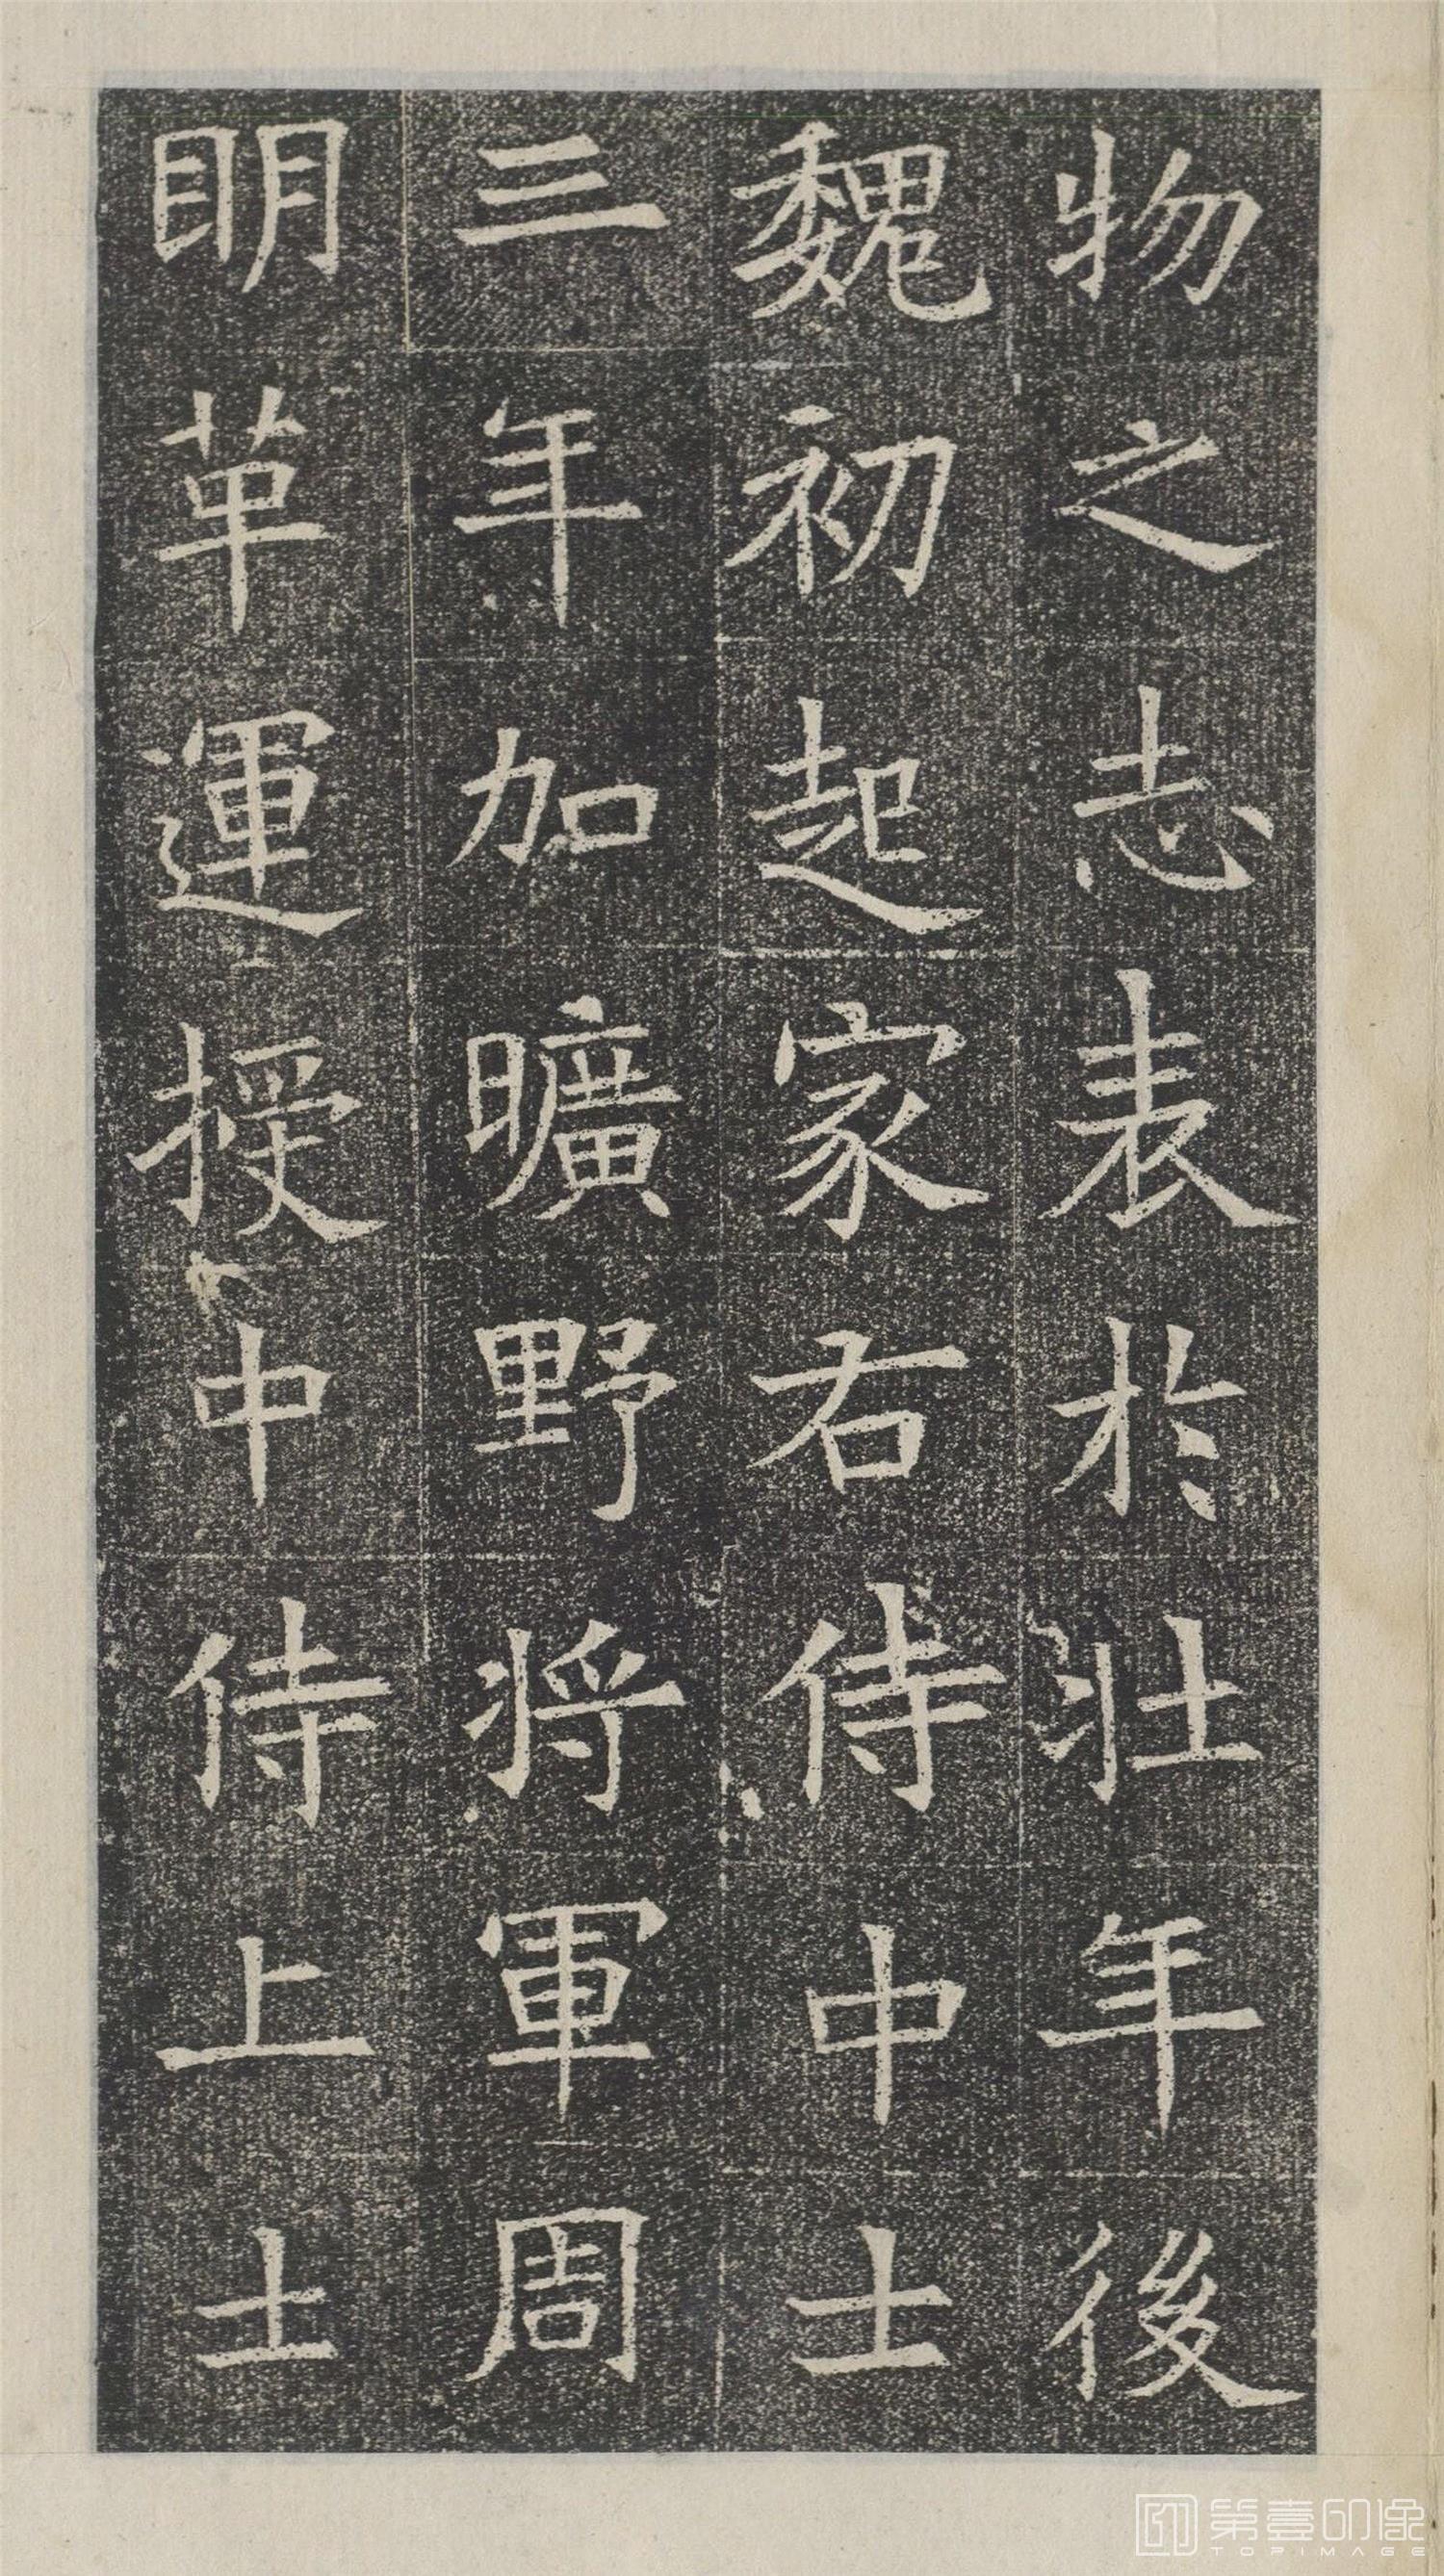 物之志表於壯年後
魏初起家右侍中士
三年加曠野將軍周
明革運授中侍上士
第壹印像
TOPIMAGE